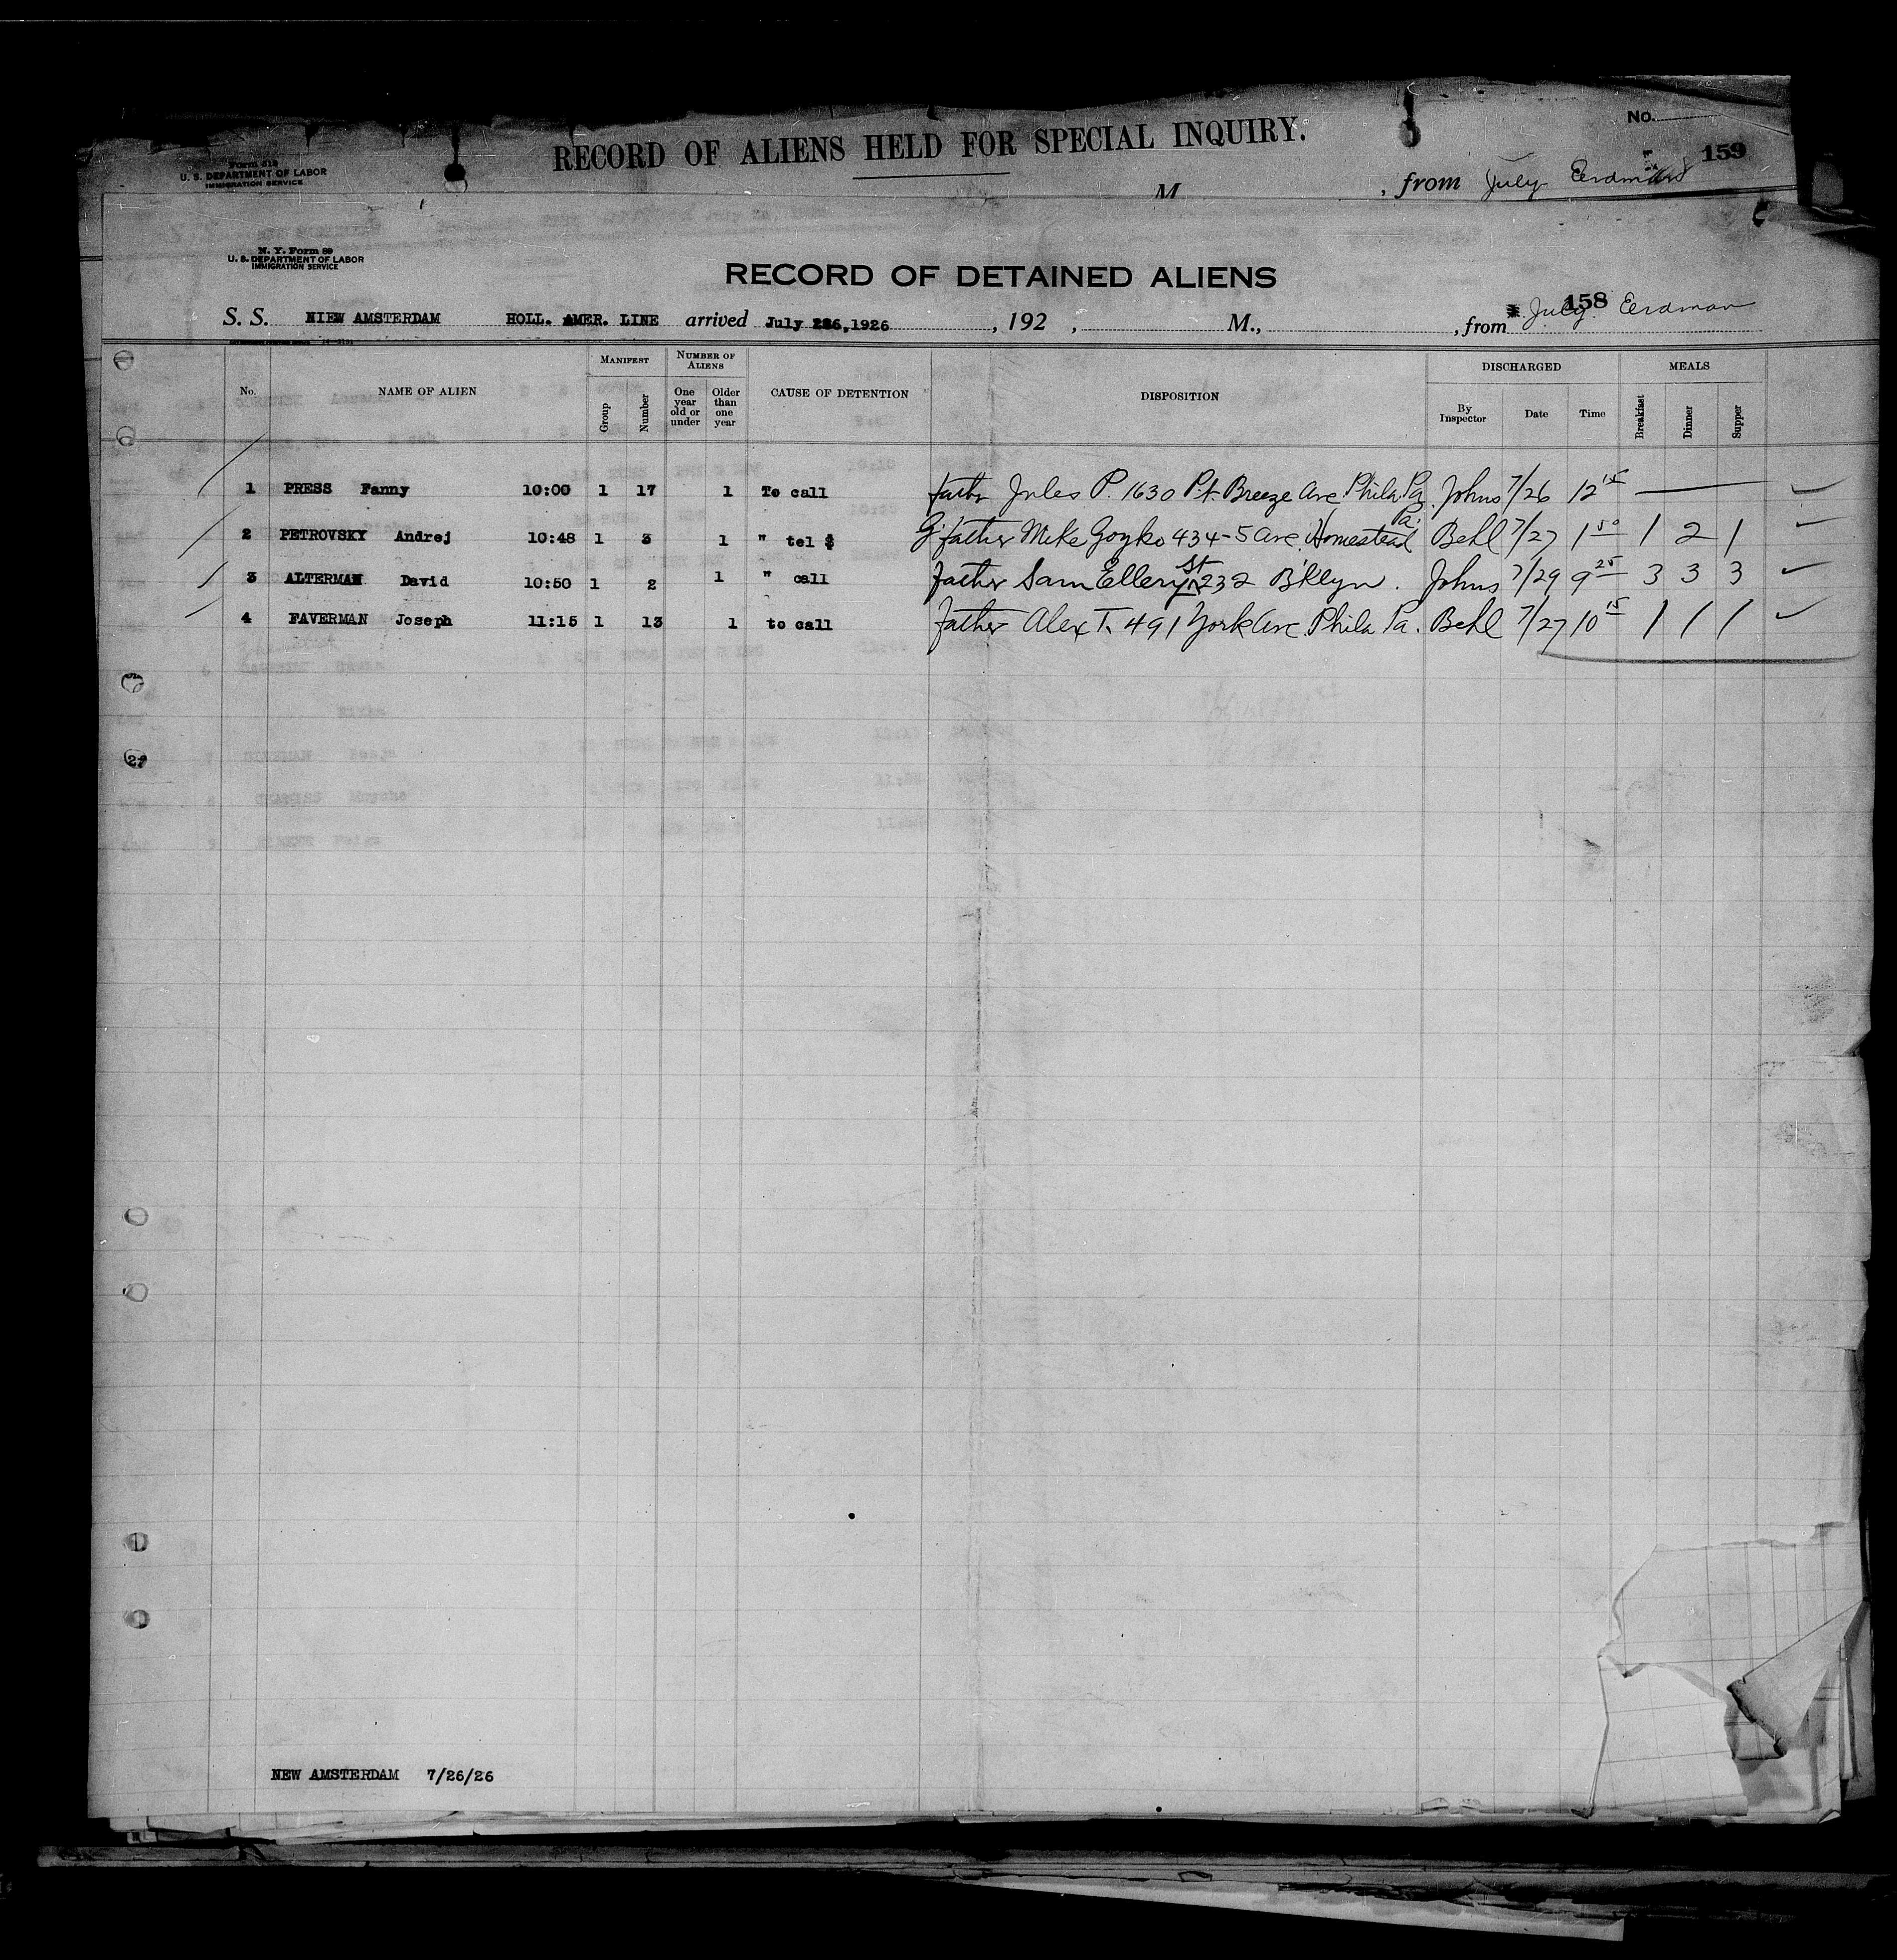 No.
RECORD OF ALIENS HELD FOR SPECIAL INQUIRY.
159
Form 518
U. S. DEPARTMENT OF LABOR
IMMIGRATION SERVICE
M
, from July Eerdmans
N. Y. Form 89
U. S. DEPARTMENT OF LABOR
IMMIGRATION SERVICE
RECORD OF DETAINED ALIENS
158
S. S. NIEW AMSTERDAM HOLL. AMER. LINE arrived July 26,1926 , 192 , M., , from July Eerdman
No. NAME OF ALIEN MANIFEST NUMBER OF ALIENS CAUSE OF DETENTION DISPOSITION DISCHARGED MEALS
Group Number One year old or under Older than one year By Inspector Date Time Breakfast Dinner Supper
1 PRESS Fanny 10:00 1 17 1 To call father Jules P. 1630 Pt. Breeze Ave. Phila. Pa. Johns 7/26 12 15
2 PETROVSKY Andrej 10:48 1 3 1 " tel $ G'father Mike Goyko 434-5 Ave. Homestead Pa. Behl 7/27 1 50 1 2 1
3 ALTERMAN David 10:50 1 2 1 " call father Sam Ellery St 232 B'klyn. Johns 7/29 9 25 3 3 3
4 FAVERMAN Joseph 11:15 1 13 1 to call father Alex T. 491 York Ave. Phila Pa. Behl 7/27 10 15 1 1 1
27
NEW AMSTERDAM 7/26/26